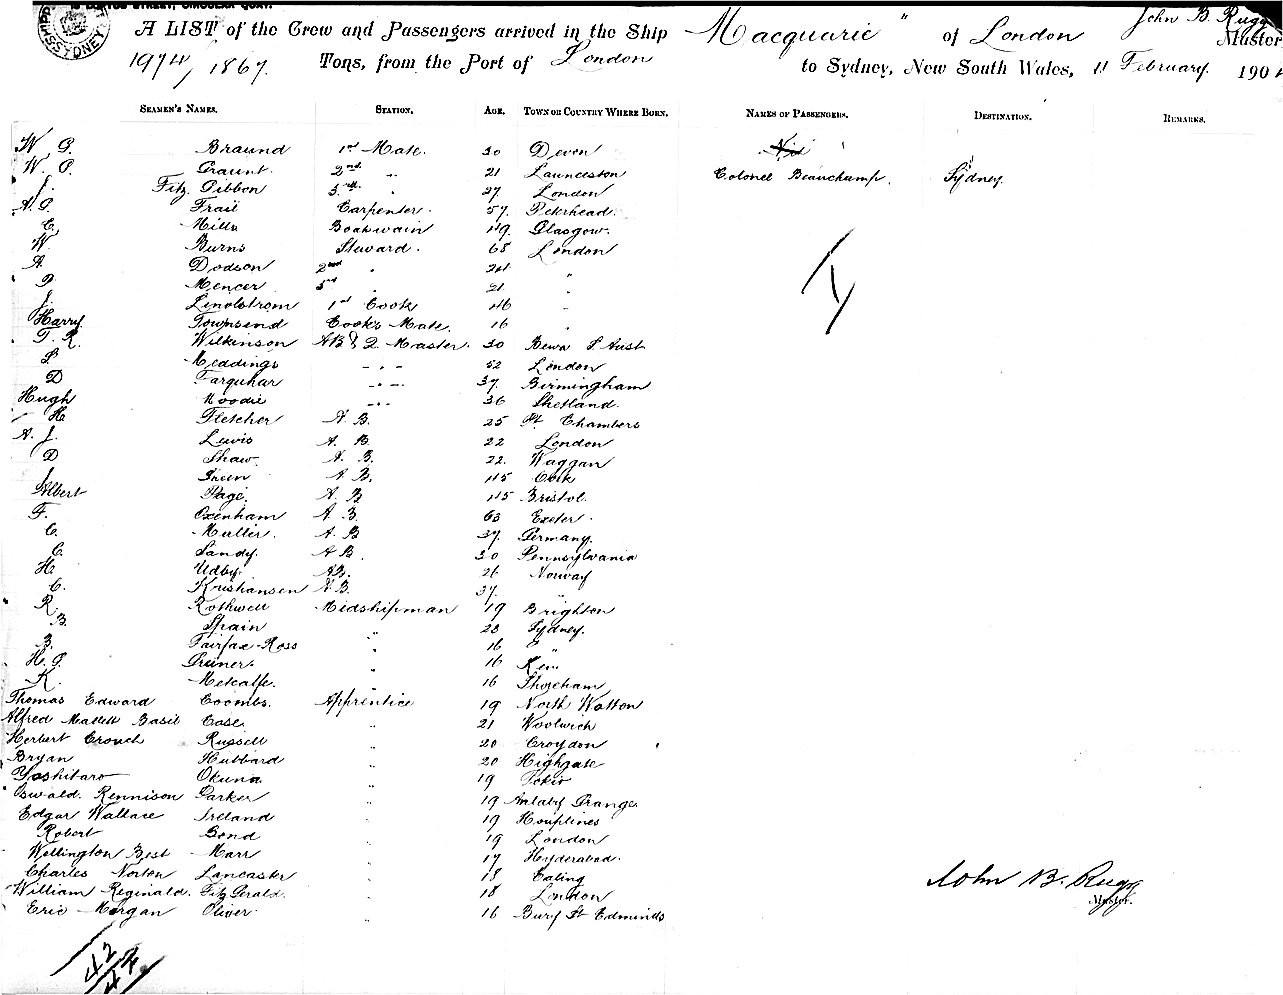 SYDNEY
A LIST of the Crew and Passengers arrived in the Ship "Macquarie" of London John B. Rugg Master
1974/1867. Tons, from the Port of London to Sydney, New South Wales, 11 February 190
SEAMEN'S NAMES. STATION. AGE. TOWN OR COUNTRY WHERE BORN. NAMES OF PASSENGERS. DESTINATION. REMARKS.
W. G. Braund 1st Mate. 30 Devon Nil
W. C. Graunt. 2nd " 21 Launceston Colonel Beauchamp. Sydney.
J. Fitz Gibbon 3rd " 27 London
A. G. Frail Carpenter. 57. Peterhead.
C. Mills Boatswain 49. Glasgow.
W. Burns Steward. 68 London
A. Dodson 2nd " 24 "
Mencer 3rd 21 "
J. Lindstrom 1st Cook 46 "
Harry Townsend Cook's Mate. 16 "
T. R. Wilkinson AB & Q. Master. 30 S Aust
Meddings - " - 52 London
D Farquhar - " - 37. Birmingham
Hugh Moodie - " - 36 Shetland.
H. Fletcher A. B. 25 St Chambers
A. J. Lewis A. B. 22 London
D Shaw. A. B. 22. Waggan
J Green A B. 45 Cork
Albert Page. A. B 45 Bristol.
F. Oxenham A. B. 63 Exeter.
C. Muller. A. B 37. Germany.
C. Sandy. A B. 30 Pennsylvania
H Udby. AB. 26 Norway
C. Kristiansen A. B. 37. "
R. Rothwell Midshipman 19 Brighton
B. Spain " 23 Sydney.
B. Fairfax-Ross " 16 "
H. G. Greiner. " 16
K. Metcalfe. " 16 Shoreham
Thomas Edward Coombs. Apprentice 19 North Watton
Alfred Mallett Basil Case. " 21 Woolwich
Herbert Crouch Russell " 20 Croydon
Bryan Hubbard " 20 Highgate
Yoshitaro Okuna " 19 Tokio
Oswald Rennison Parker " 19 Anlaby Grange.
Edgar Wallace Ireland " 19 Houplines
Robert Bond " 19 London
Wellington Best Marr " 17 Hyderabad.
Charles Norton Lancaster " 18 Ealing
William Reginald. Fitz Gerald. " 18 London
Eric Morgan Oliver. " 16 Bury St Edminds
John B. Rugg
Master.
42